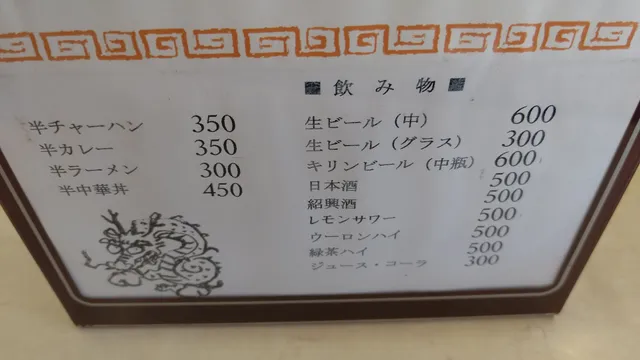 半チャーハン 350
半カレー 350
半ラーメン 300
半中華丼 450
飲み物
生ビール（中） 600
生ビール（グラス） 300
キリンビール（中瓶） 600
日本酒 500
紹興酒 500
レモンサワー 500
ウーロンハイ 500
緑茶ハイ 500
ジュース・コーラ 300